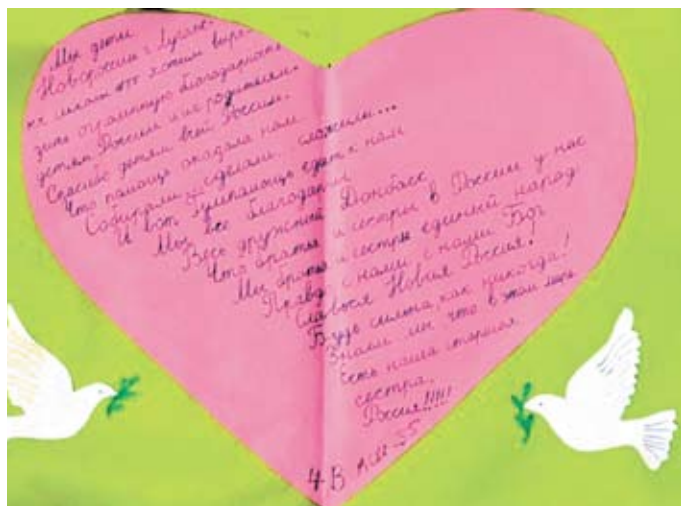 Мы дети
Новороссии г. Луганс-
ка школы №55 хотим выра-
зить огромную благодарность
детям России и их родителям.
Спасибо детям всей России.
Что помощь оказала нам
Собирали, сделали, сложили...
И вот гумпомощь едет к нам
Мы все благодарны
Весь дружный Донбасс
Что братья и сестры в России у нас
Мы братья и сестры единый народ
Правда с нами, с нами Бог
Славься Новая Россия!
Будь сильна, как никогда!
Знали мы что в этом мире
Есть наша старшая
сестра.
Россия!!!!!
4 В